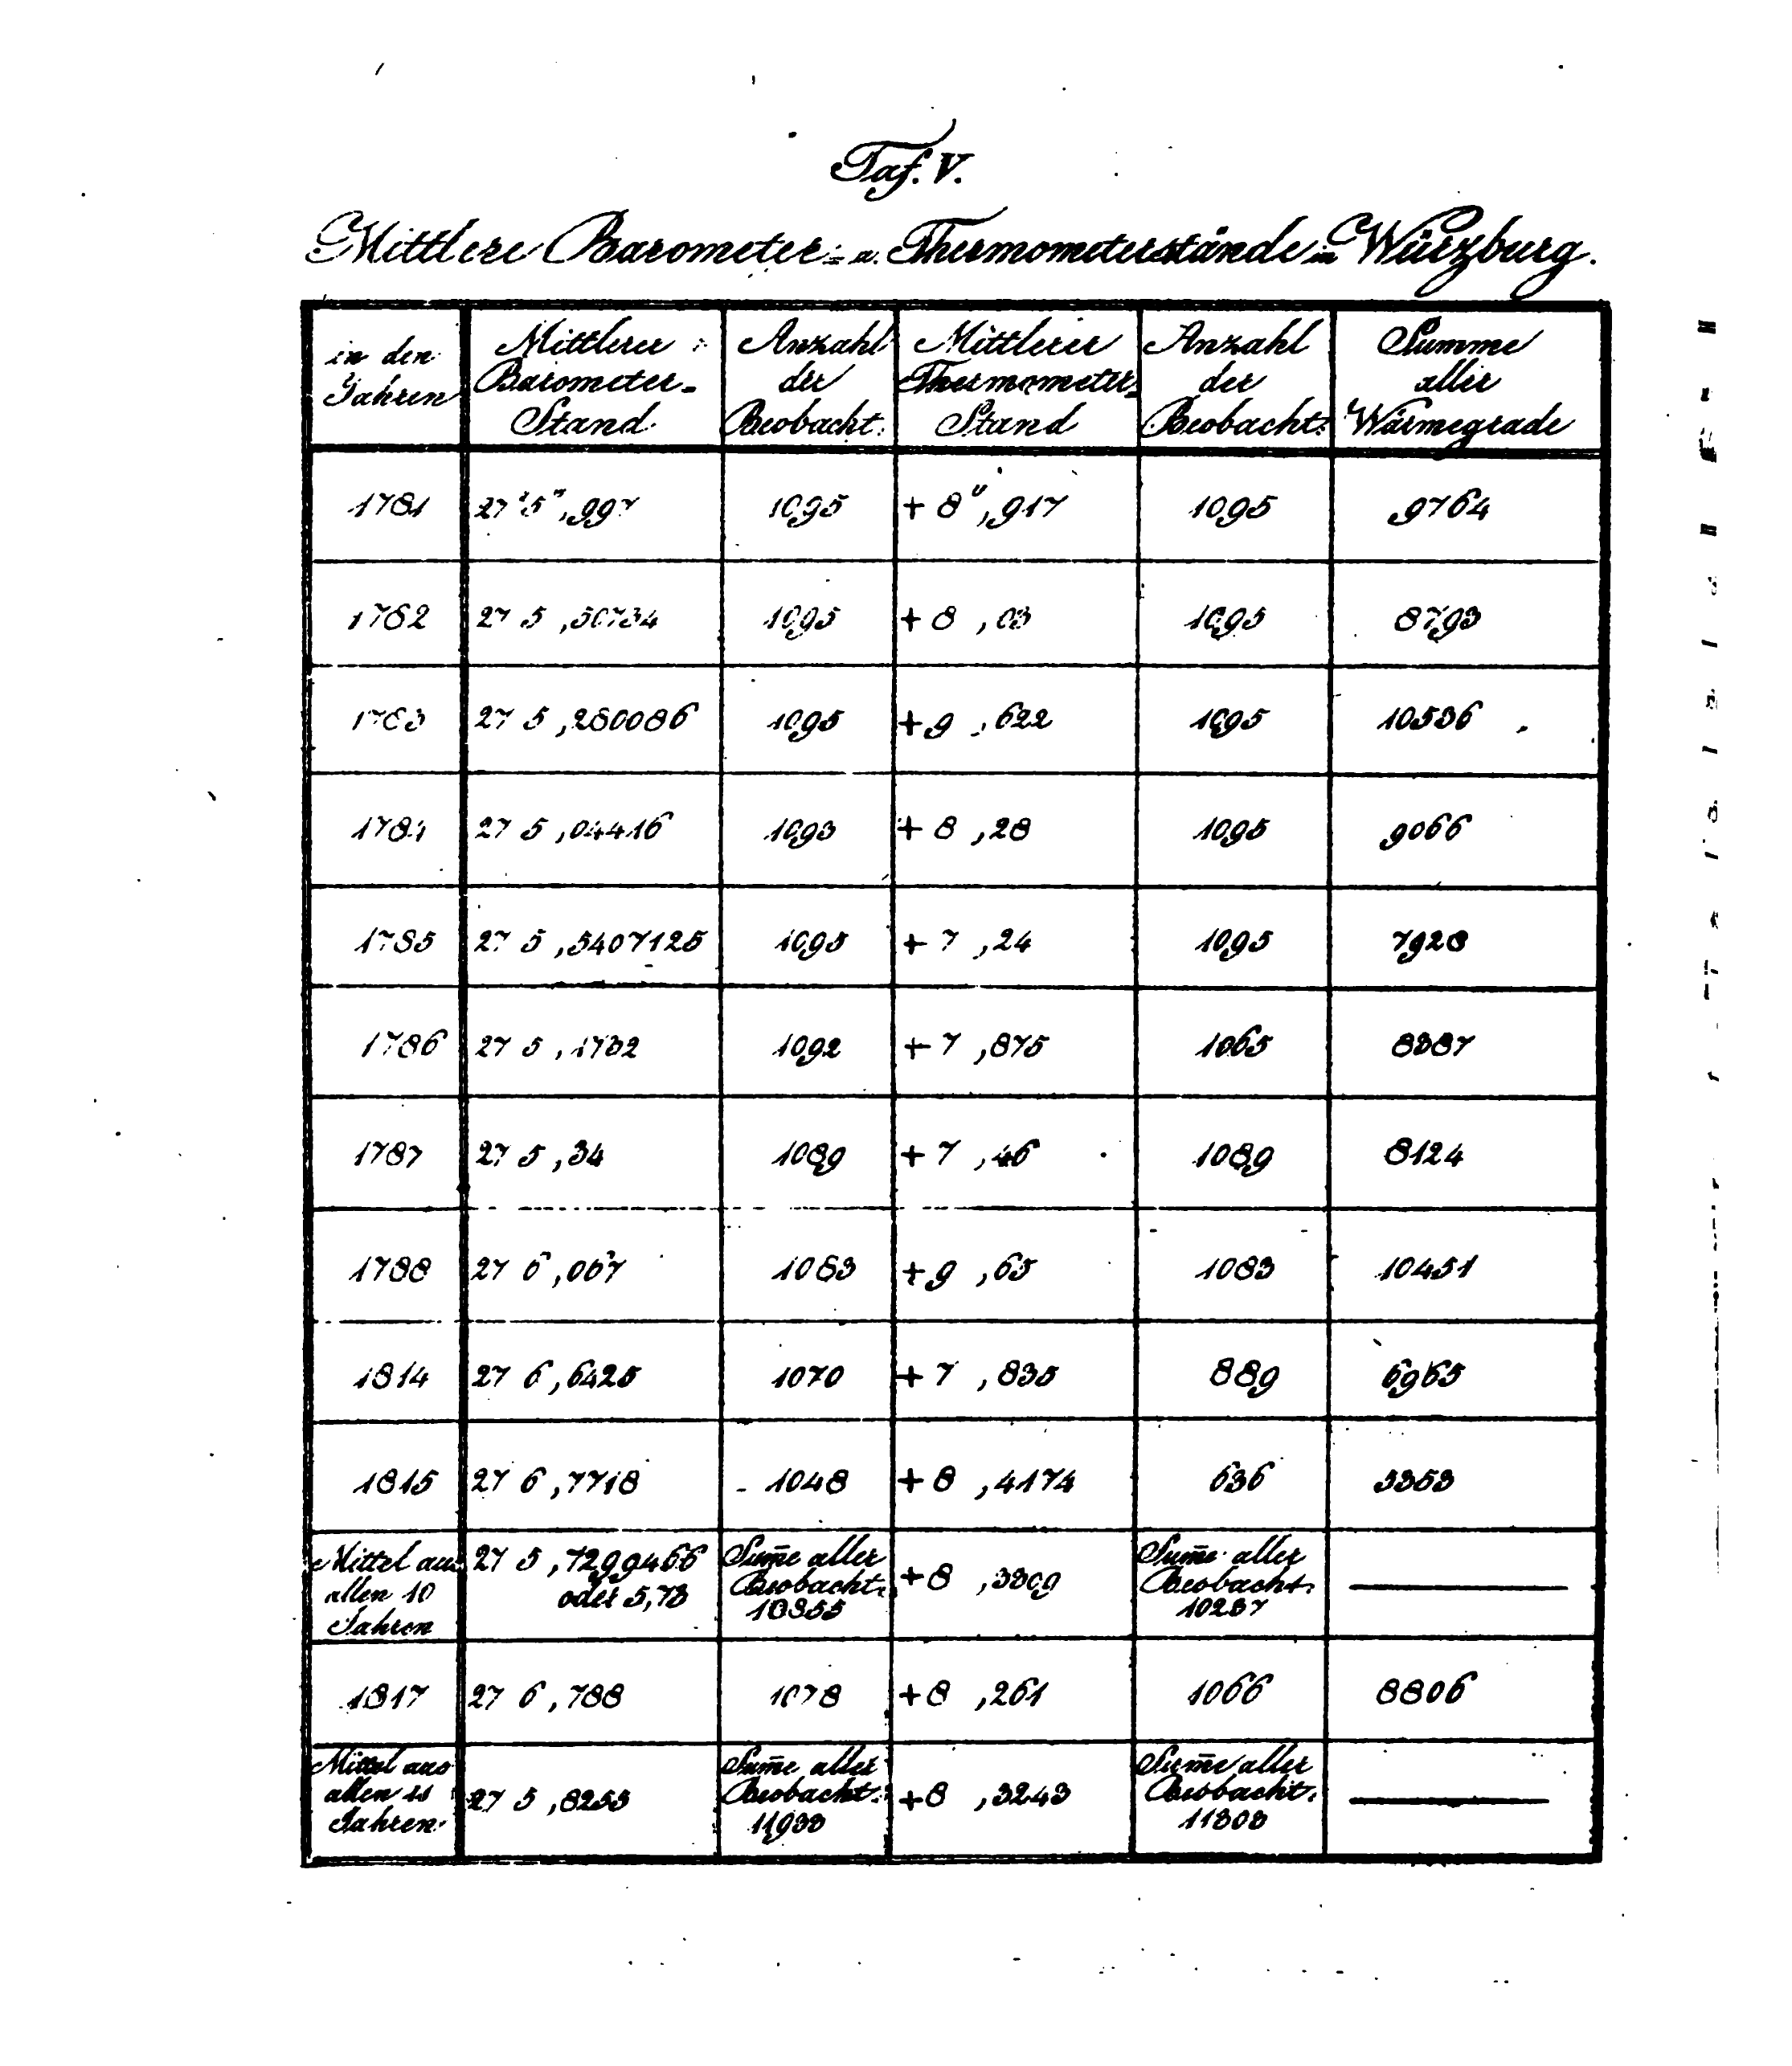 Taf. V.
Mittlere Barometer- u. Thermometerstände in Würzburg.
in den Jahren | Mittlerer Barometer- Stand | Anzahl der Beobacht. | Mittlerer Thermometer- Stand | Anzahl der Beobacht. | Summe aller Wärmegrade
1781 | 27' 5", 997 | 1095 | + 8°, 917 | 1095 | 9764
1782 | 27 5 ,50734 | 1095 | + 8 , 03 | 1095 | 8793
1783 | 27 5 ,280086 | 1095 | + 9 , 622 | 1095 | 10536
1784 | 27 5 ,04416 | 1093 | + 8 , 28 | 1095 | 9066
1785 | 27 5 ,5407125 | 1095 | + 7 , 24 | 1095 | 7928
1786 | 27 5 , 1732 | 1092 | + 7 , 875 | 1065 | 8387
1787 | 27 5 , 34 | 1089 | + 7 , 46 | 1089 | 8124
1788 | 27 6 , 067 | 1083 | + 9 , 65 | 1083 | 10451
1814 | 27 6 , 6425 | 1070 | + 7 , 835 | 889 | 6965
1815 | 27 6 , 7718 | 1048 | + 8 , 4174 | 636 | 5353
Mittel aus allen 10 Jahren | 27 5 , 7299466 oder 5,73 | Sum̄e aller Beobacht. 10855 | + 8 , 3309 | Sum̄e aller Beobacht. 10237
1817 | 27 6 , 788 | 1078 | + 8 , 261 | 1066 | 8806
Mittel aus allen 11 Jahren | 27 5 , 8255 | Sum̄e aller Beobacht. 11933 | + 8 , 3243 | Sum̄e aller Beobacht. 11303